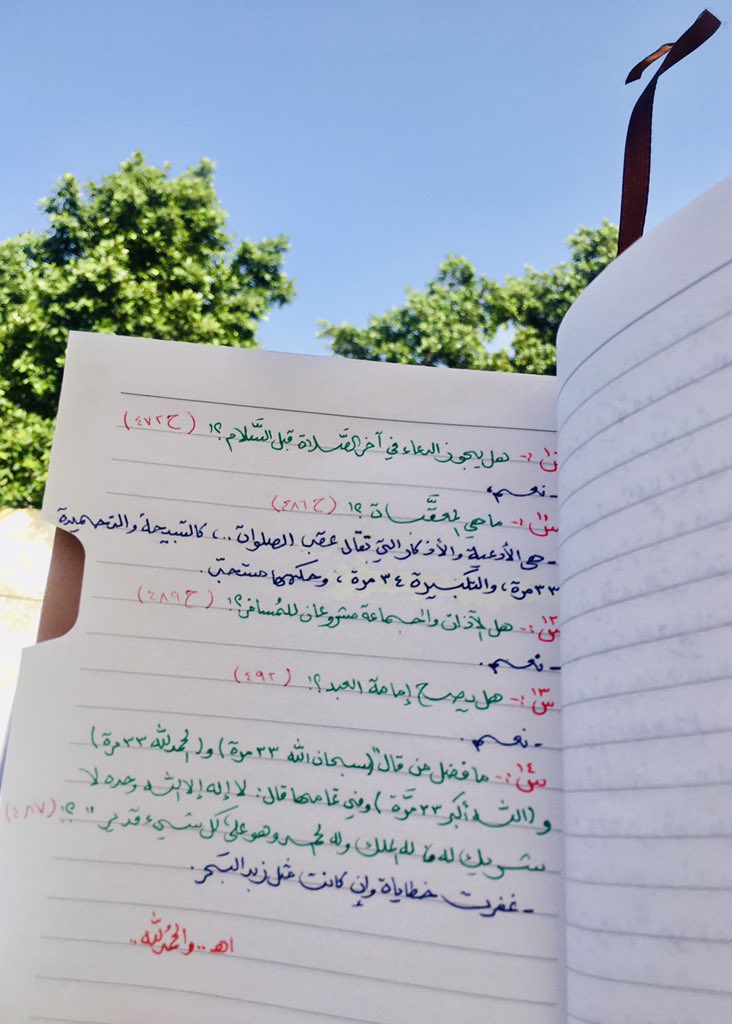 س١٠:- هل يجوز الدعاء في آخر الصَّلاة قبل السَّلام؟! (ح٤٧٢)
- نعم،
س١١:- ما هي المعقَّبات؟! (ح٤٨٦)
- هي الأدعية والأذكار التي تقال عقب الصلوات..، كالتسبيحة والتحميدة
٣٣ مرة، والتكبيرة ٣٤ مرة، وحكمها مستحبّ.
س١٢:- هل الآذان والجماعة مشروعان للمُسافر؟! (ح٤٨٩)
- نعم.
س١٣:- هل يصح إمامة العبد؟! (٤٩٢)
- نعم.
س١٤:- ما فضل من قال "(سبحان الله ٣٣ مرة) و(الحمدلله ٣٣ مرة)
و(الله أكبر ٣٣ مرَّة) وفي تمامها قال: لا إله إلا الله وحده لا
شريك له له الملك وله الحمد وهو على كل شيء قدير"؟! (٤٨٧)
- غفرت خطاياة وإن كانت مثل زبد البَحر.
اهـ.. والحمدُلله..